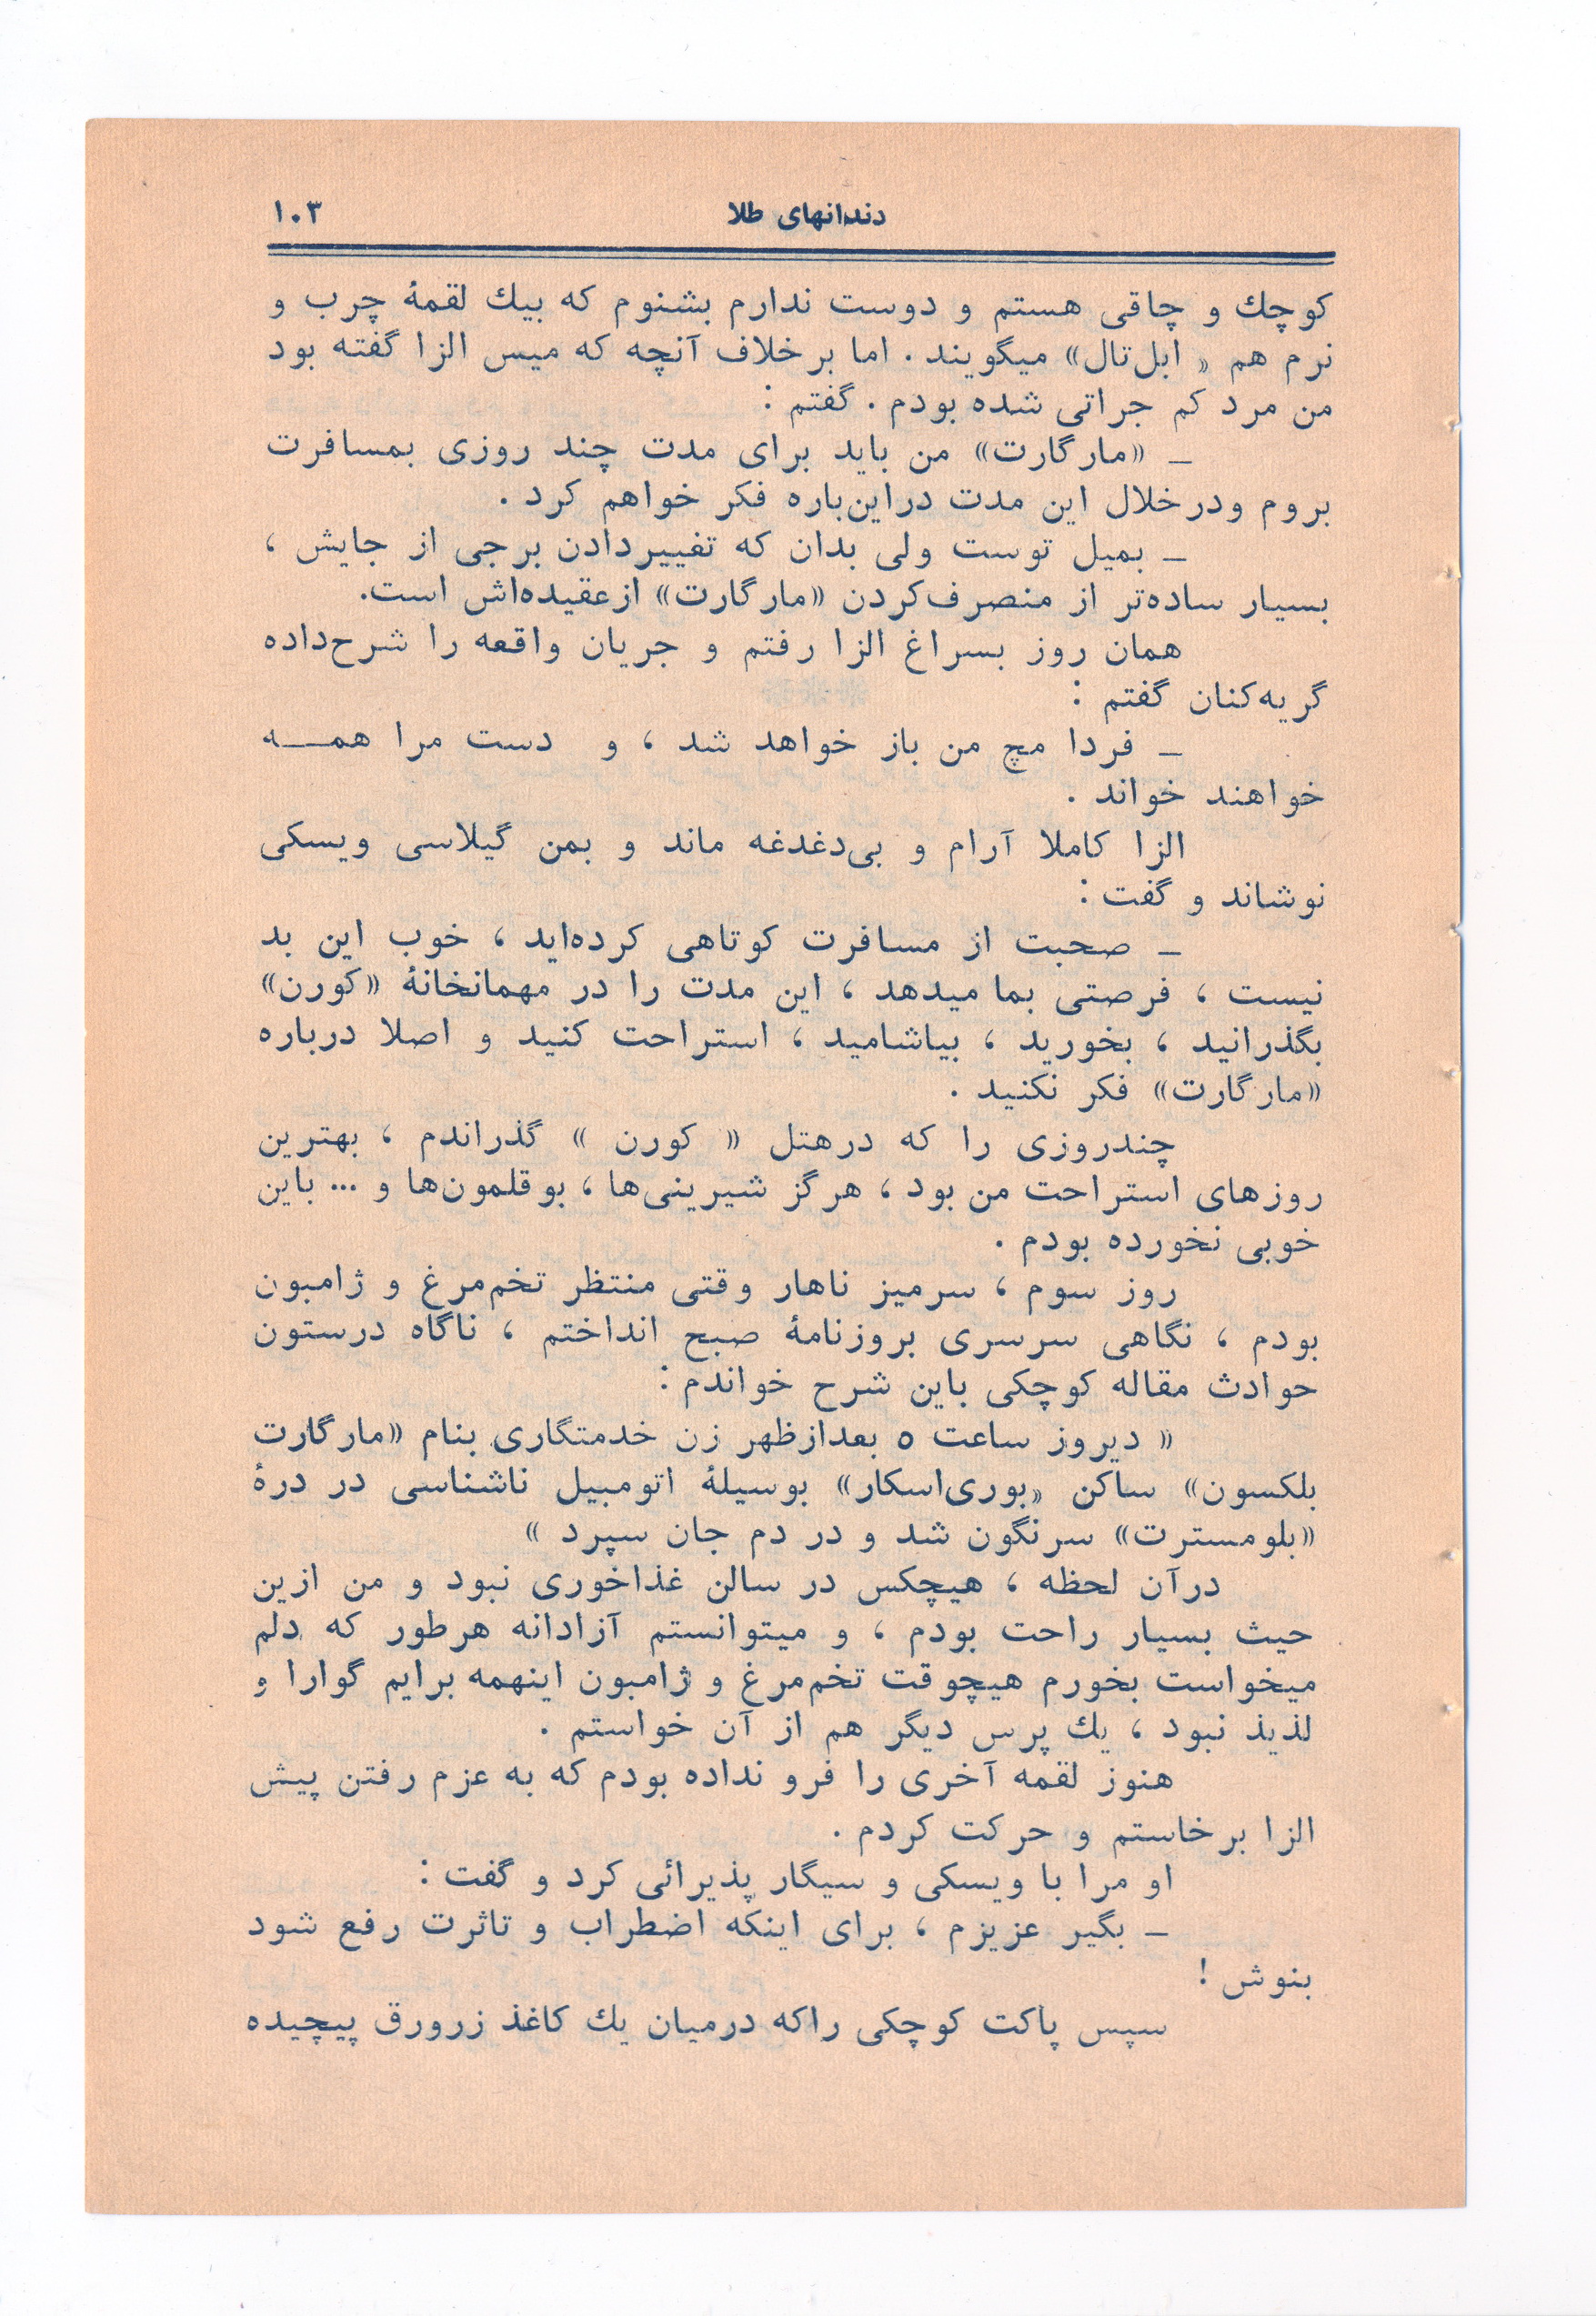 دندانهای طلا ۱۰۳
کوچك و چاقی هستم و دوست ندارم بشنوم که بیك لقمهٔ چرب و
نرم هم « ابل‌تال» میگویند . اما برخلاف آنچه که میس الزا گفته بود
من مرد کم جراتی شده بودم . گفتم :
ـ «مارگارت» من باید برای مدت چند روزی بمسافرت
بروم ودرخلال این مدت دراین‌باره فکر خواهم کرد .
ـ بمیل توست ولی بدان که تغییردادن برجی از جایش ،
بسیار ساده‌تر از منصرف‌کردن «مارگارت» ازعقیده‌اش است.
همان روز بسراغ الزا رفتم و جریان واقعه را شرح‌داده
گریه‌کنان گفتم :
ـ فردا مچ من باز خواهد شد ، و دست مرا همـــه
خواهند خواند .
الزا کاملا آرام و بی‌دغدغه ماند و بمن گیلاسی ویسکی
نوشاند و گفت :
ـ صحبت از مسافرت کوتاهی کرده‌اید ، خوب این بد
نیست ، فرصتی بما میدهد ، این مدت را در مهمانخانهٔ «کورن»
بگذرانید ، بخورید ، بیاشامید ، استراحت کنید و اصلا درباره
«مارگارت» فکر نکنید .
چندروزی را که درهتل « کورن » گذراندم ، بهترین
روزهای استراحت من بود ، هرگز شیرینی‌ها ، بوقلمون‌ها و ... باین
خوبی نخورده بودم .
روز سوم ، سرمیز ناهار وقتی منتظر تخم‌مرغ و ژامبون
بودم ، نگاهی سرسری بروزنامهٔ صبح انداختم ، ناگاه درستون
حوادث مقاله کوچکی باین شرح خواندم :
« دیروز ساعت ۵ بعدازظهر زن خدمتگاری بنام «مارگارت
بلکسون» ساکن «بوری‌اسکار» بوسیلهٔ اتومبیل ناشناسی در درهٔ
«بلومسترت» سرنگون شد و در دم جان سپرد »
درآن لحظه ، هیچکس در سالن غذاخوری نبود و من ازین
حیث بسیار راحت بودم ، و میتوانستم آزادانه هرطور که دلم
میخواست بخورم هیچوقت تخم‌مرغ و ژامبون اینهمه برایم گوارا و
لذیذ نبود ، یك پرس دیگر هم از آن خواستم .
هنوز لقمه آخری را فرو نداده بودم که به عزم رفتن پیش
الزا برخاستم و حرکت کردم .
او مرا با ویسکی و سیگار پذیرائی کرد و گفت :
ـ بگیر عزیزم ، برای اینکه اضطراب و تاثرت رفع شود
بنوش !
سپس پاکت کوچکی راکه درمیان یك کاغذ زرورق پیچیده